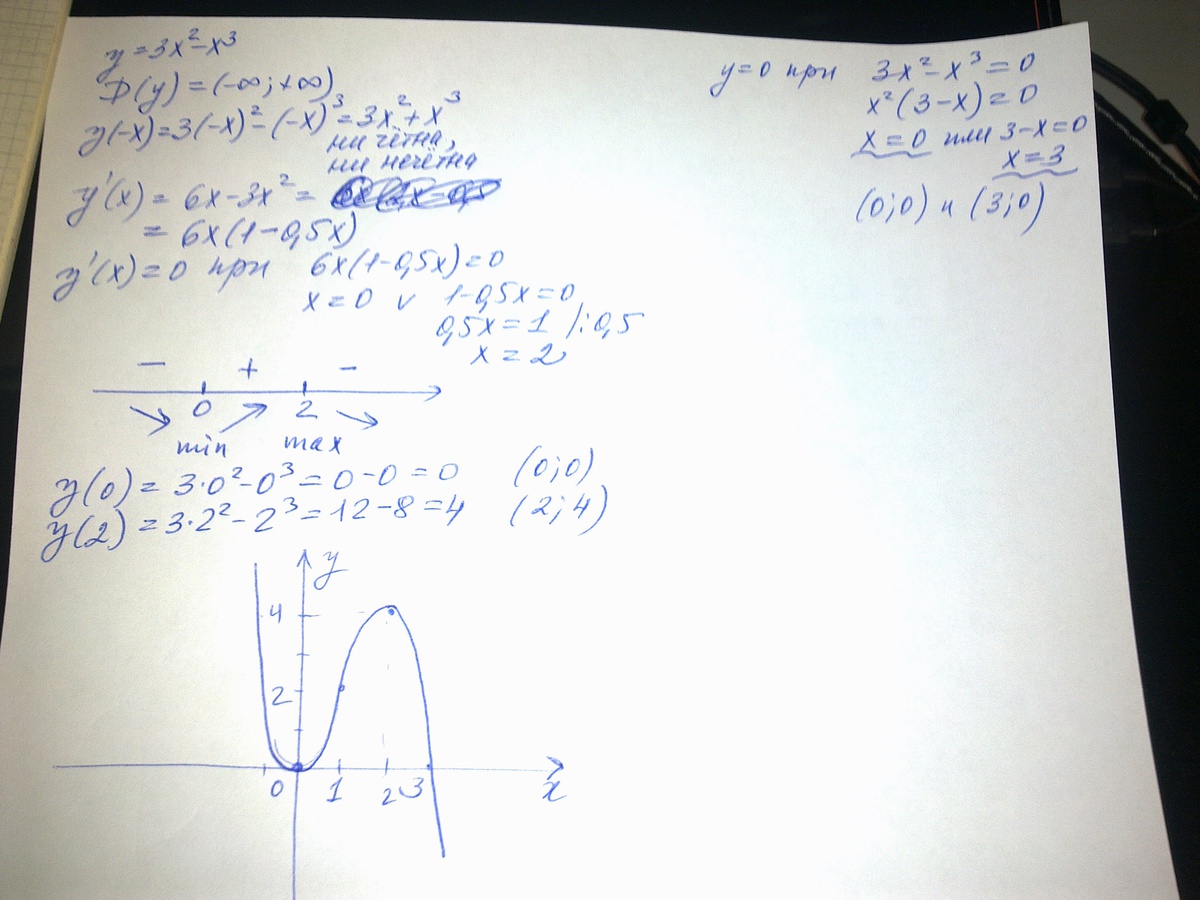 y=3x²-x³
D(y)=(-∞;+∞)
y(-x)=3(-x)²-(-x)³=3x²+x³
ни чётна,
ни нечётна
y'(x)=6x-3x²=
=6x(1-0,5x)
y'(x)=0 при 6x(1-0,5x)=0
x=0 v 1-0,5x=0
0,5x=1 /:0,5
x=2
- + -
0 2
min max
y(0)=3·0²-0³=0-0=0 (0;0)
y(2)=3·2²-2³=12-8=4 (2;4)
y
4
2
0 1 2 3 x
y=0 при 3x²-x³=0
x²(3-x)=0
x=0 или 3-x=0
x=3
(0;0) и (3;0)